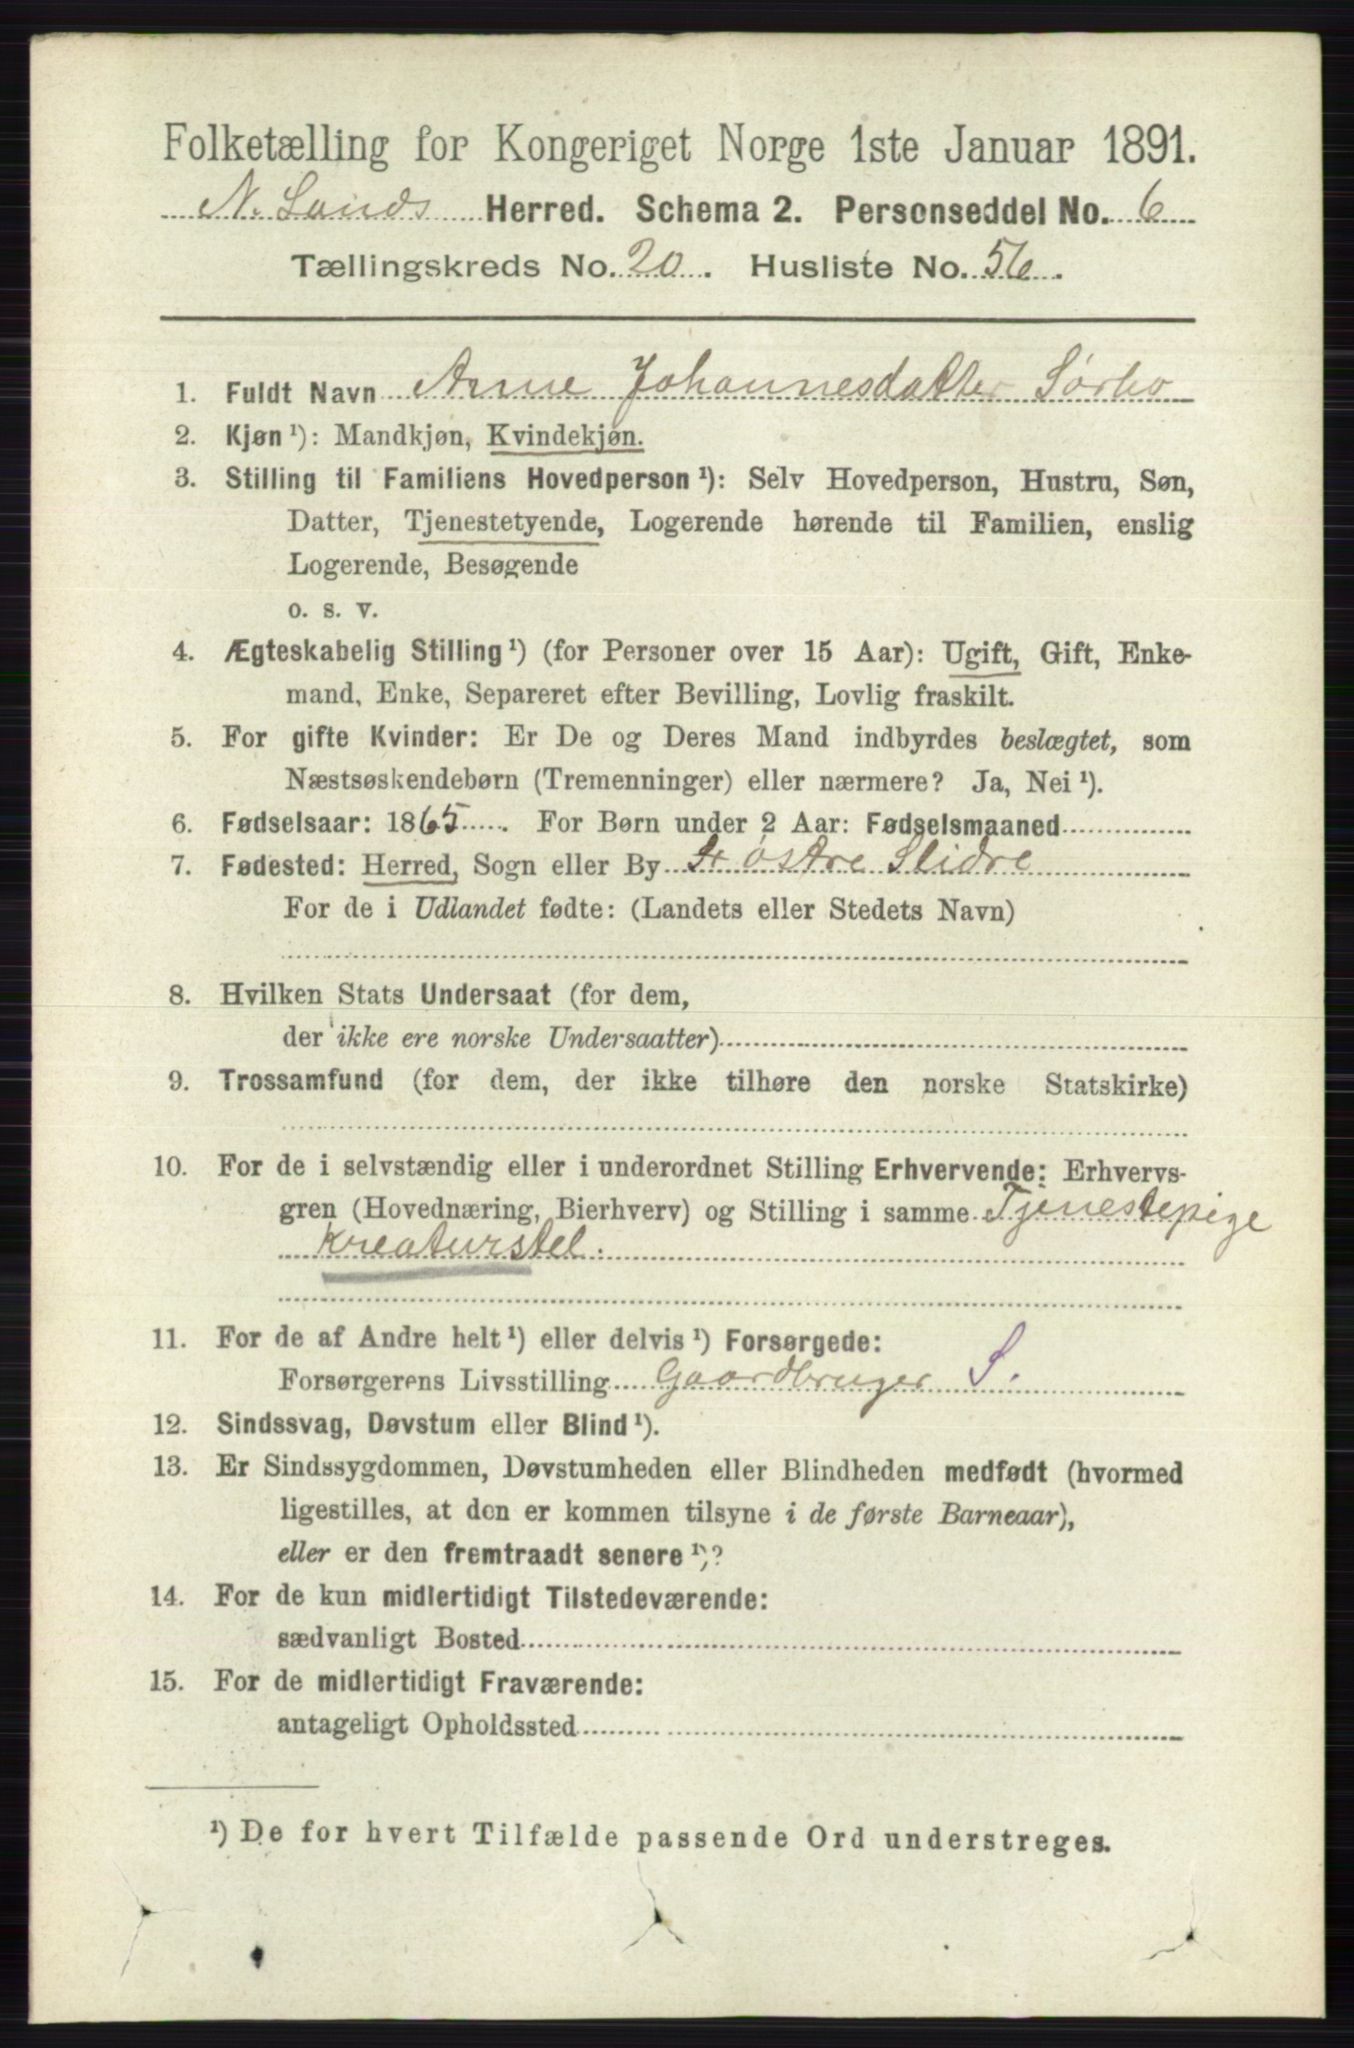 Folketælling for Kongeriget Norge 1ste Januar 1891.
N. Lands Herred. Schema 2. Personseddel No. 6
Tællingskreds No. 20. Husliste No. 56.
1. Fuldt Navn Anne Johannesdatter Sørbo
2. Kjøn ¹): Mandkjøn, Kvindekjøn.
3. Stilling til Familiens Hovedperson ¹): Selv Hovedperson, Hustru, Søn,
Datter, Tjenestetyende, Logerende hørende til Familien, enslig
Logerende, Besøgende
o. s. v.
4. Ægteskabelig Stilling ¹) (for Personer over 15 Aar): Ugift, Gift, Enke-
mand, Enke, Separeret efter Bevilling, Lovlig fraskilt.
5. For gifte Kvinder: Er De og Deres Mand indbyrdes beslægtet, som
Næstsøskendebørn (Tremenninger) eller nærmere? Ja, Nei ¹).
6. Fødselsaar: 1865. For Børn under 2 Aar: Fødselsmaaned
7. Fødested: Herred, Sogn eller By Østre Slidre
For de i Udlandet fødte: (Landets eller Stedets Navn)
8. Hvilken Stats Undersaat (for dem,
der ikke ere norske Undersaatter)
9. Trossamfund (for dem, der ikke tilhøre den norske Statskirke)
10. For de i selvstændig eller i underordnet Stilling Erhvervende: Erhvervs-
gren (Hovednæring, Bierhverv) og Stilling i samme Tjenestepige
Kreaturstel.
11. For de af Andre helt ¹) eller delvis ¹) Forsørgede:
Forsørgerens Livsstilling Gaardbruger S.
12. Sindssvag, Døvstum eller Blind ¹).
13. Er Sindssygdommen, Døvstumheden eller Blindheden medfødt (hvormed
ligestilles, at den er kommen tilsyne i de første Barneaar),
eller er den fremtraadt senere ¹)?
14. For de kun midlertidigt Tilstedeværende:
sædvanligt Bosted
15. For de midlertidigt Fraværende:
antageligt Opholdssted
¹) De for hvert Tilfælde passende Ord understreges.